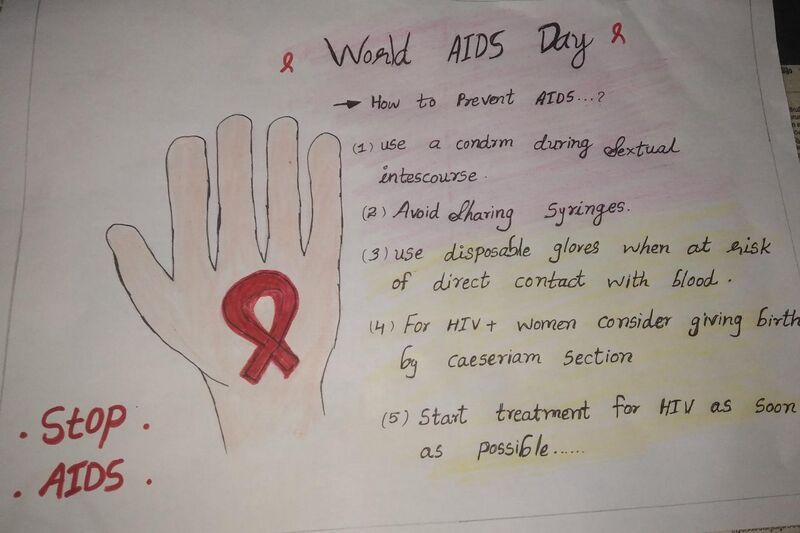 World AIDS Day
→ How to Prevent AIDS...?
(1) use a condrm during Sextual
intescourse.
(2) Avoid Sharing Syringes.
(3) use disposable gloves when at risk
of direct contact with blood.
(4) For HIV+ women consider giving birth
by caeseriam section
(5) Start treatment for HIV as soon
as possible......
. Stop .
. AIDS .